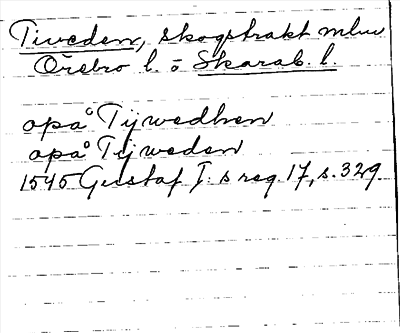 Tiveden, skogstrakt mlm
Örebro l. o Skarab. l.
opå Tijwedhen
opå Tijweden
1545 Gustaf I: s reg. 17, s. 329.